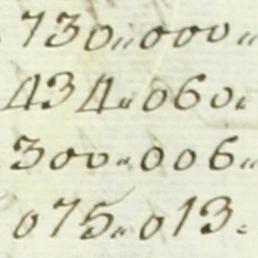 730,,000,,
434,,060,
300,,006,,
075,,013,